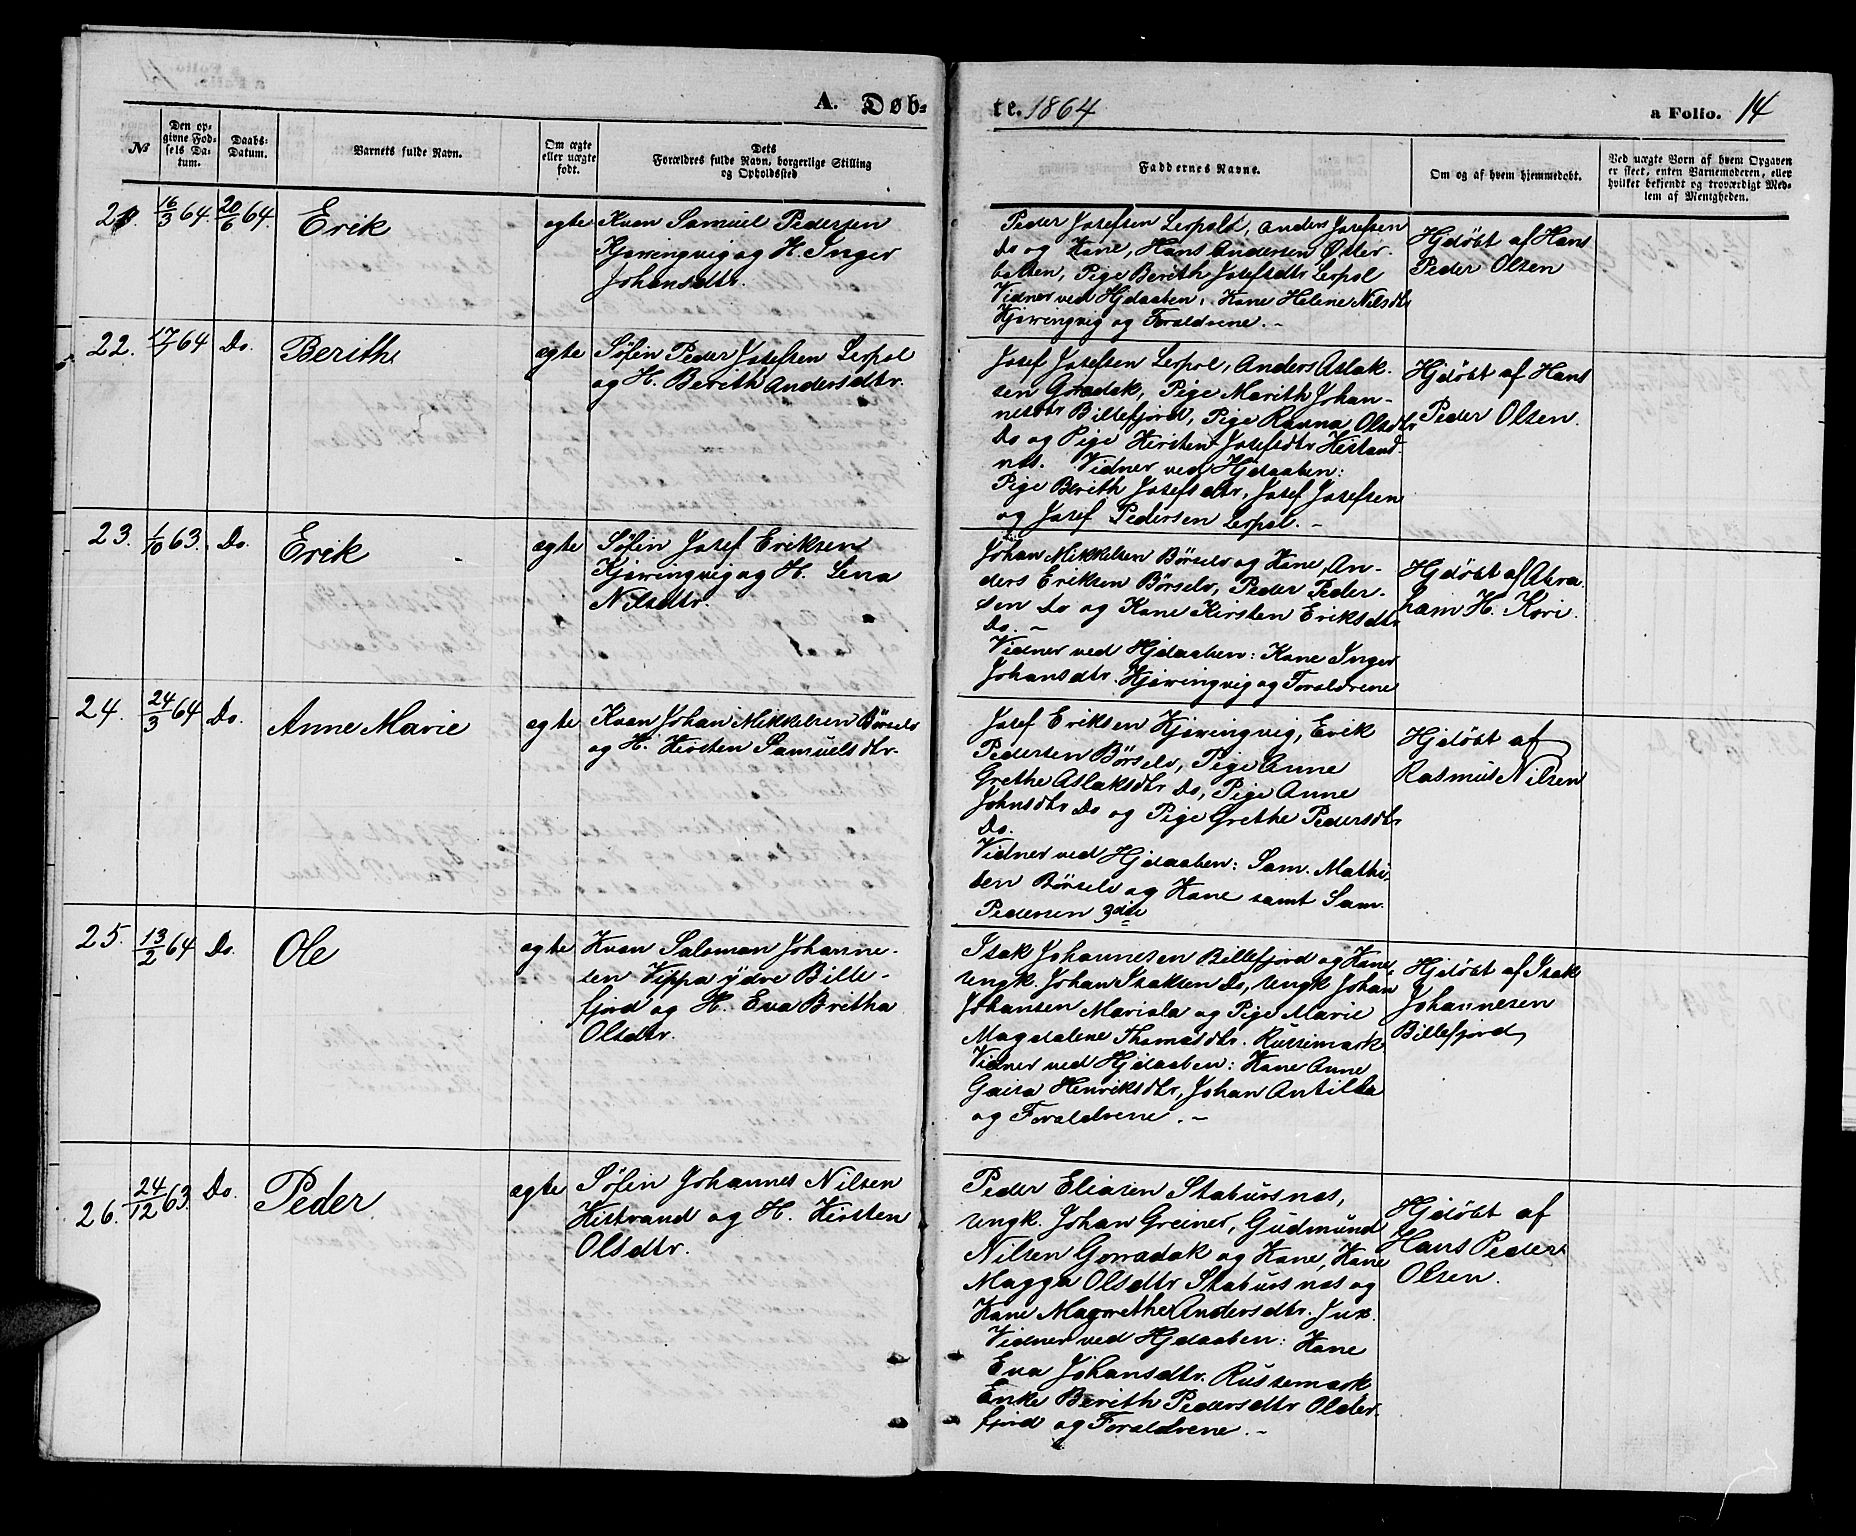 A. Døb-
te. 1864
a Folio. 14
No
Den op-
givne Fød-
sels Da-
tum.
Daabs-
Datum.
Barnets fulde Navn.
Om ægte
eller uægte
født.
Dets
Forældres fulde Navn, borgerlige Stilling
og Opholdssted
Faddernes Navne.
Om og af hvem hjemmedøbt.
Ved uægte Born af hvem Opgaven
er skeet, enten Barnemoderen, eller
hvilket bekjendt og troværdigt Med-
lem af Menigheden.
21. 16/3 64. 20/6 64. Erik
egte
Kvæn Samuel Pedersen
Kjæringvig og H. Inger
Johansdtr.
Peder Josefsen Lerpold, Anders Josefsen
Do og Kone, Hans Andersen Øster-
botten, Pige Berith Josefsdtr Lerpol
Vidner ved Hjdaaben: Kone Helene Nilsdtr
Kjæringvig og Forældrene. -
Hjdøbt af Hans
Peder Olsen
22. 64 Do. Berith
ægte
Søfin Peder Josefsen Lerpol
og H. Berith Andersdtr.
Josef Josefsen Lerpol, Anders Aslak-
sen Goradak, Pige Marith Johan-
nesdtr Billefjord, Pige Ravna Olsdtr
Do og Pige Kirsten Josefsdtr Kistrand-
nes. Vidner ved Hjdaaben:
Pige Berith Josefsdtr, Josef Josefsen
og Josef Pedersen Lerpol. -
Hjdøbt af Hans
Peder Olsen.
23. 1/10 63. Do. Erik
ægte
Søfin Josef Eriksen
Kjæringvig og H. Lena
Nilsdtr.
Johan Mikkelsen Børselv og Kone, An-
ders Eriksen Børselv, Peder Peder-
sen Do og Kone Kirsten Eriksdtr
Do. -
Vidner ved Hjdaaben: Kone Inger
Johansdtr. Kjæringvig og Forældrene
Hjdøbt af Abra-
ham H. Kori.
24. 24/3 64 Do. Anne Marie
egte
Kvæn Johan Mikkelsen Børselv
og H. Kirsten Samuelsdtr.
Josef Eriksen Kjæringvig, Erik
Pedersen Børselv, Pige Anne
Grethe Aslaksdtr Do, Pige Anne
Johnsdtr Do og Pige Grethe Pedersdtr
Do.
Vidner ved Hjdaaben: Sam. Mathi-
sen Børselv og Kone samt Sam.
Pedersen 3die
Hjdøbt af
Rasmus Nilsen
25. 13/2 64 Do. Ole
ægte
Kvæn Salomon Johanne-
sen Vippa ydre Bille-
fjord og H. Eva Bretha
Olsdtr.
Isak Johannesen Billefjord og Kone,
Ungk. Johan Isaksen Do, Ungk Johan
Johansen Mariola og Pige Marie
Magdalene Thomasdtr. Russemark
Vidner ved Hjdaaben: Kone Anne
Gaisa Henriksdtr, Johan Antilla
og Forældrene. -
Hjdøbt af Isak
Johannesen
Billefjord
26. 24/12 63. Do. Peder
ægte
Søfin Johannes Nilsen
Kistrand og H. Kirsten
Olsdtr.
Peder Eliasen Stabursnæs,
Ungk. Johan Greiner, Gudmund
Nilsen Gorradak og Kone, Kone
Magga Olsdtr Stabursnæs og
Kone Magrethe Andersdtr.
Vidner ved Hjdaaben: Kone
Eva Johansdtr. Russemark
Enke Berith Pedersdtr Older-
fjord og Forældrene. -
Hjdøbt af
Hans Peder
Olsen.